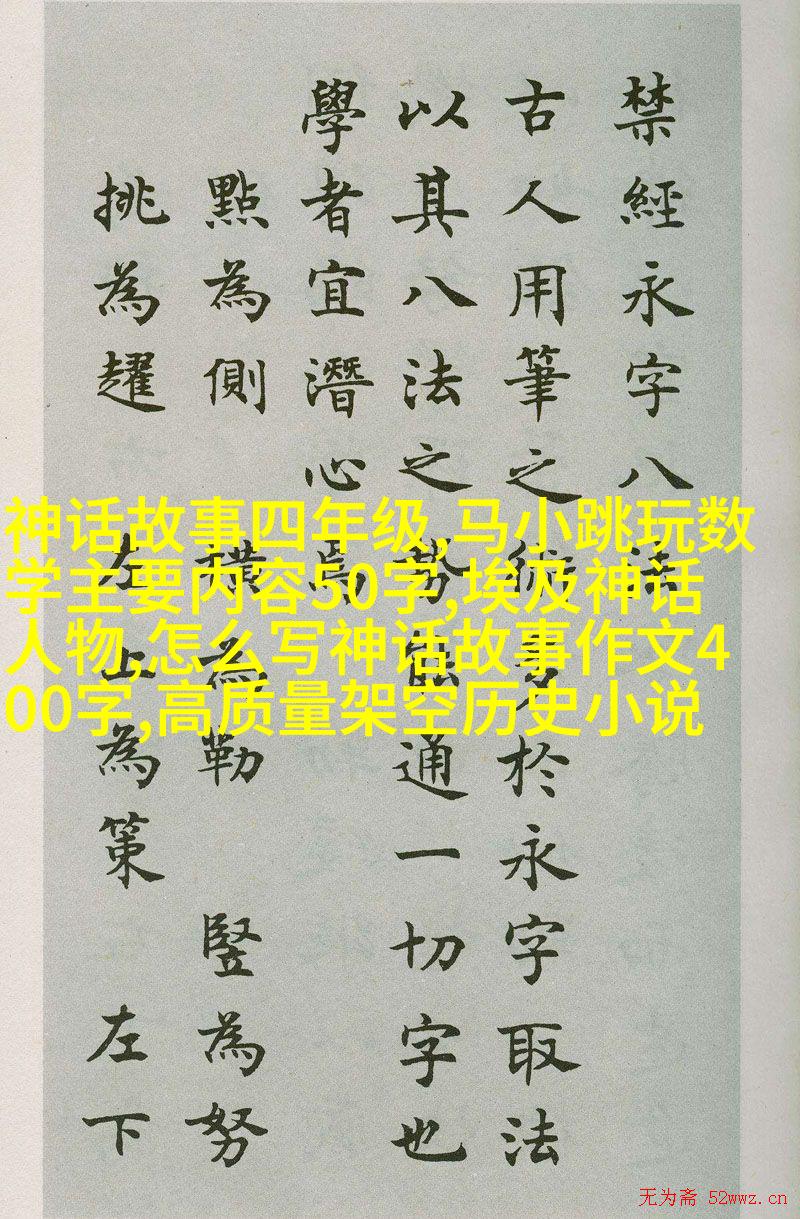 禁經永字八法
古人用筆之術多於永字取法
以其八法之勢能通一切字也
學者宜潛心焉
點為側 橫為勒 豎為努
挑為趯 左上為策 左下
神话故事四年级,马小跳玩数
学主要内容50字,埃及神话
人物,怎么写神话故事作文4
00字,高质量架空历史小说
无为斋 52wwz.cn